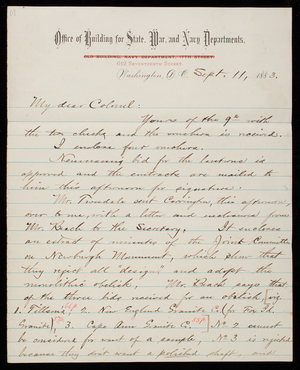 Office of Building for State, War, and Navy Departments.
OLD BUILDING, NAVY DEPARTMENT, 17TH STREET,
Seventeenth Street,
Washington, D.C. Sept. 11, 1883.
My dear Colonel:
Yours of the 9th with
the two checks and the vouchers is received.
I enclose four vouchers.
bid for the lanterns is
approved and the contracts are mailed to
him this afternoon for signature.
Mr. Truesdale sent Carrington, this afternoon,
over to me, with a letter and enclosures from
Mr. Keach to the Secretary. It encloses
an extract of minutes of the Joint Committee
on Newburgh Monument, which show that
they reject all "designs" and adopt the
monolithic obelisk. Mr. Keach says that
of the three bids received for an obelisk, viz.
1. Tillson's 2. New England Granite Co. (for Fox Id.
Granite), 3. Cape Ann Granite Co. No 2 cannot
be considered for want of a sample, No. 3 is rejected
because they don't want a polished shaft, and